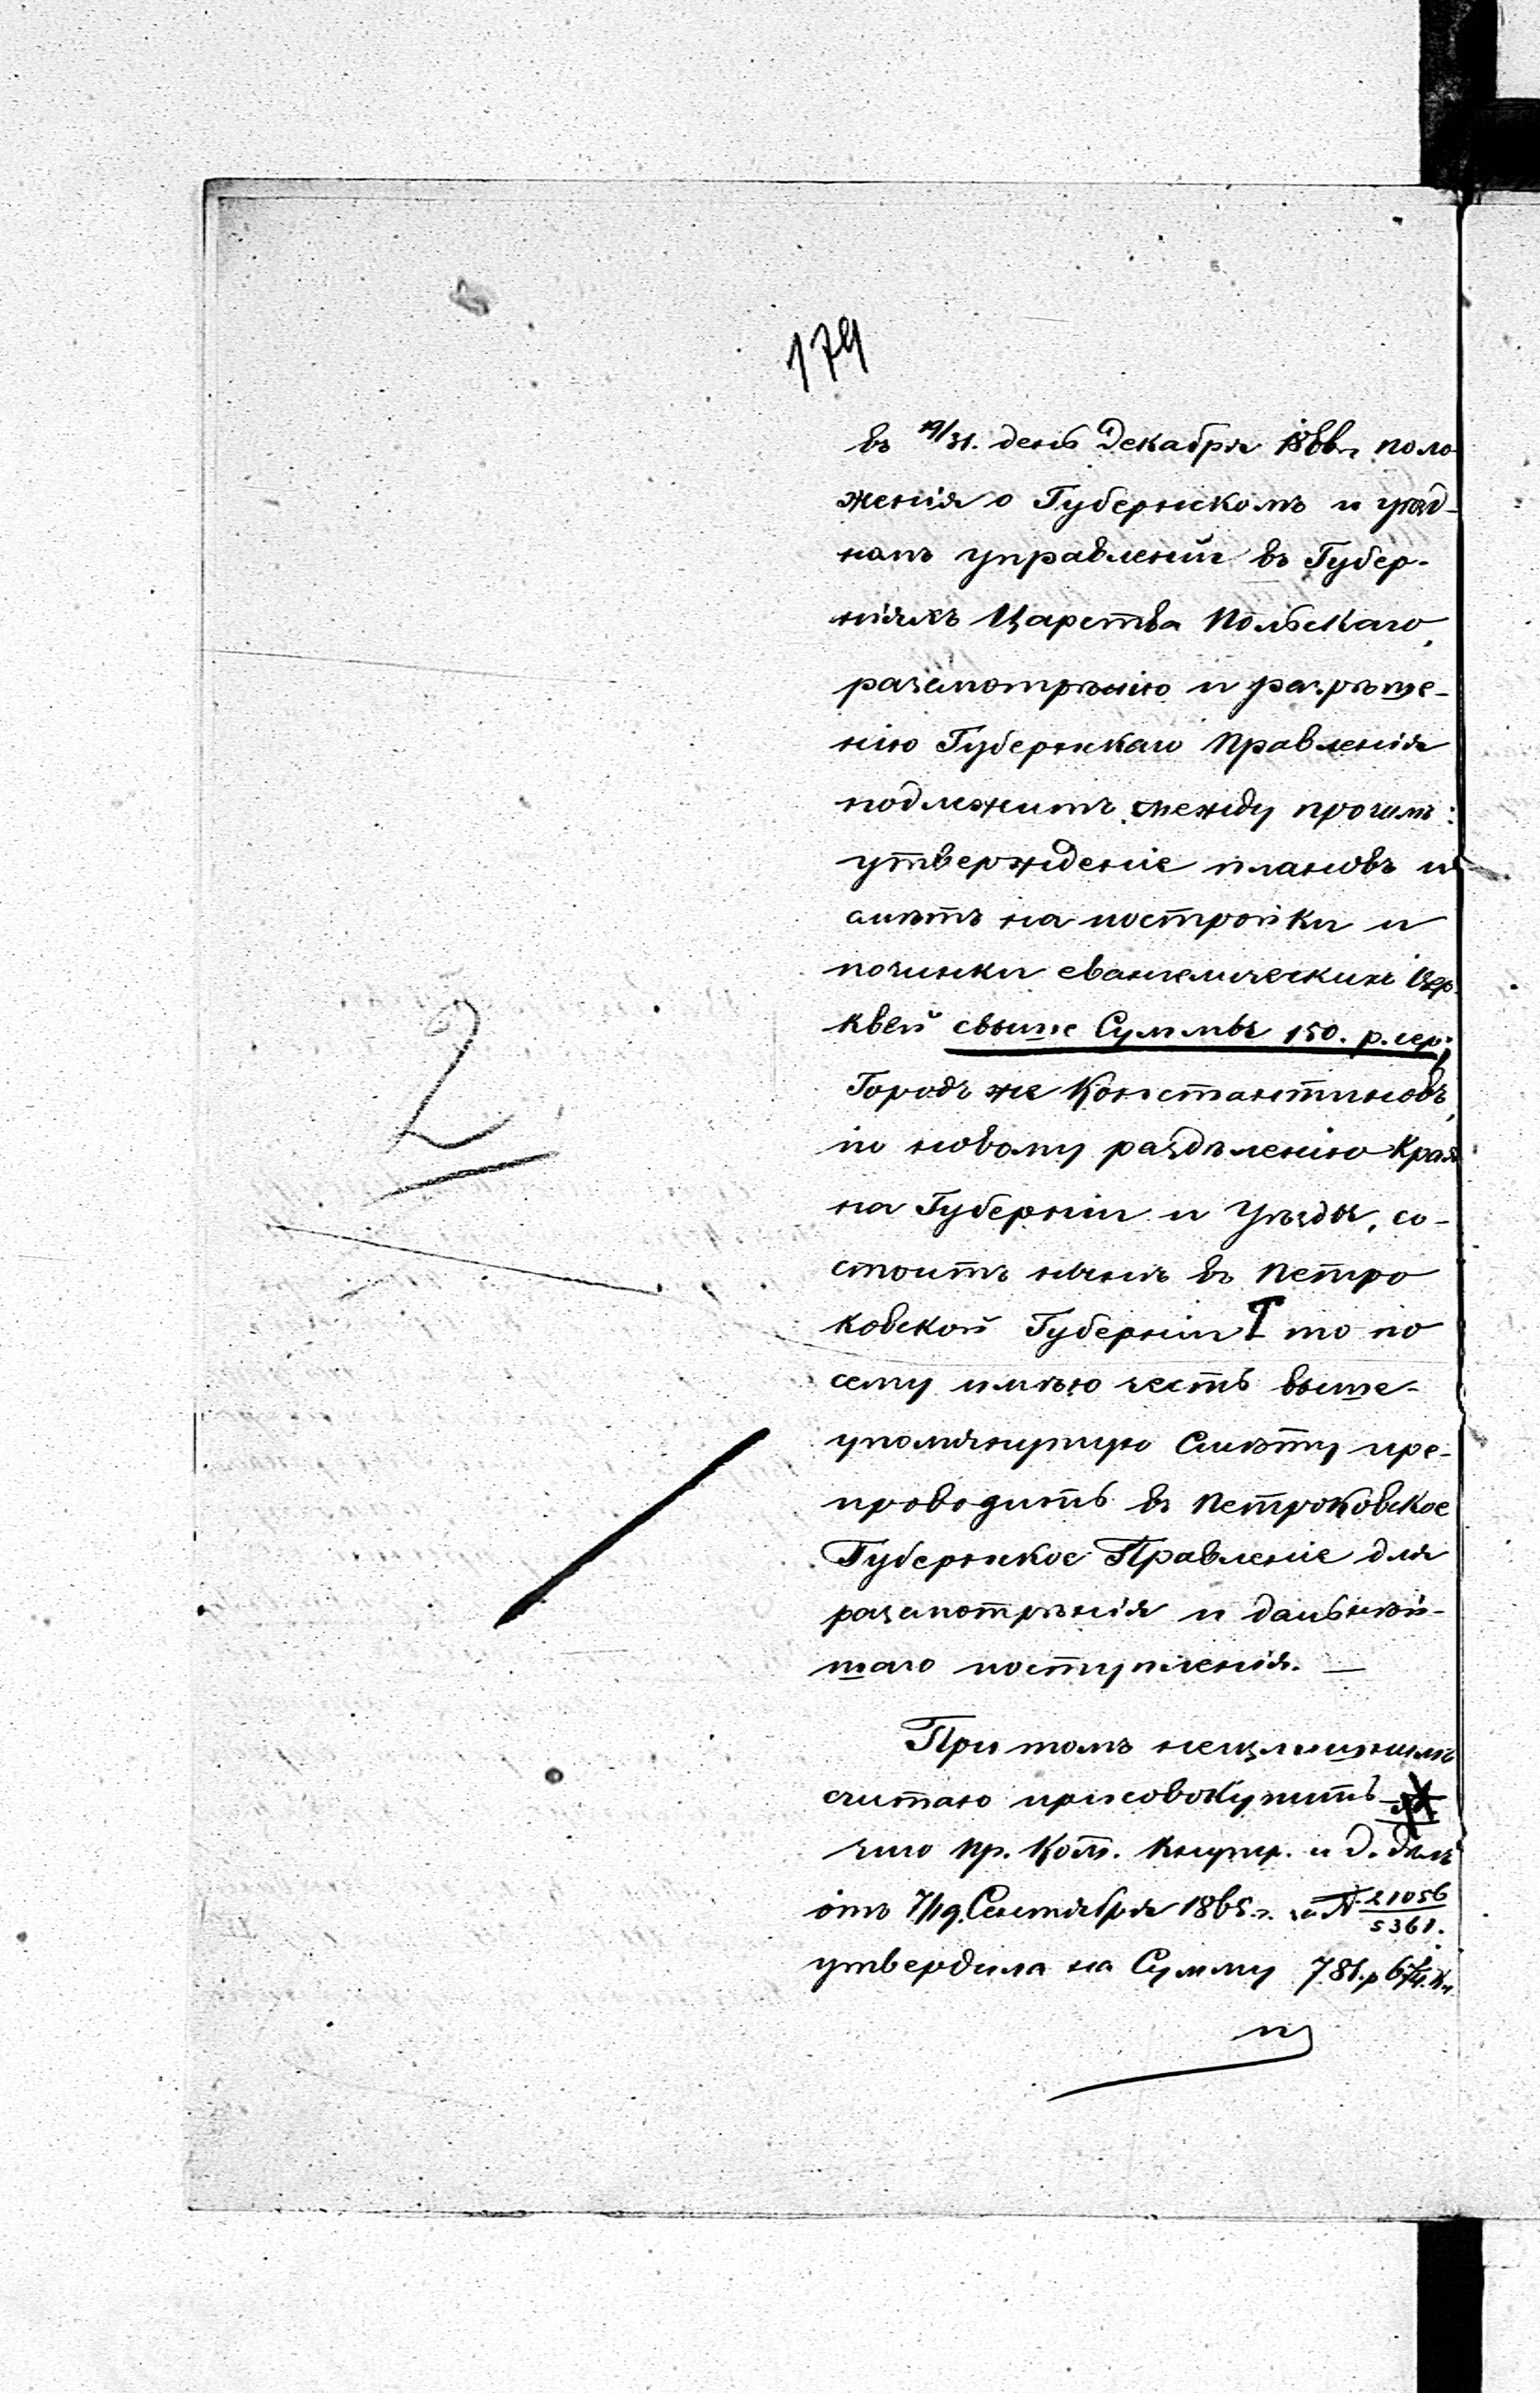 179
въ 19/31. день Декабря 1866 г. поло-
женія о Губернскомъ и уѣзд-
номъ управленіи въ Губер-
ніяхъ Царства Польскаго,
разсмотрѣнію и разрѣше-
нію Губернскаго Правленія
подлежитъ между прочимъ:
утвержденіе плановъ и
смѣтъ на постройки и
починки евангелическихъ Цер-
квей свыше Суммы 150. р. сер.;
Городъ же Константиновъ,
по новому раздѣленію Края
на Губерніи и Уѣзды, со-
стоитъ нынѣ въ Петро
ковской Губерніи то по
сему имѣю честь выше-
упомянутую Смѣту пре-
проводить въ Петроковское
Губернское Правленіе для
разсмотрѣнія и дальнѣй-
шаго поступленія. —
При томъ неизлишнимъ
считаю присовокупить
что Пр. Ком. Внутр. и Д. дѣлъ
отъ 7/19. Сентября 1865 г. за № 21056/5361.
утвердила на Сумму 781. р 67 к.
2